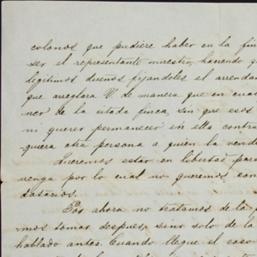 colonos que pudiere haber en la fin
ser el representante nuestro, haciendo q
legitimos dueños fijandoles el arrendam
que arreglara V. de manera que en cuan
ner de la citada finca, sin que esos
ni querer permanecer en ella contra
quiera otra persona a quien la vende
Queremos estar en libertad para
venga por lo cual no queremos con
datarios.
Por ahora no tratamos de la
mos tomar despues, sino solo de la
hablado antes. Cuando llegue el caso